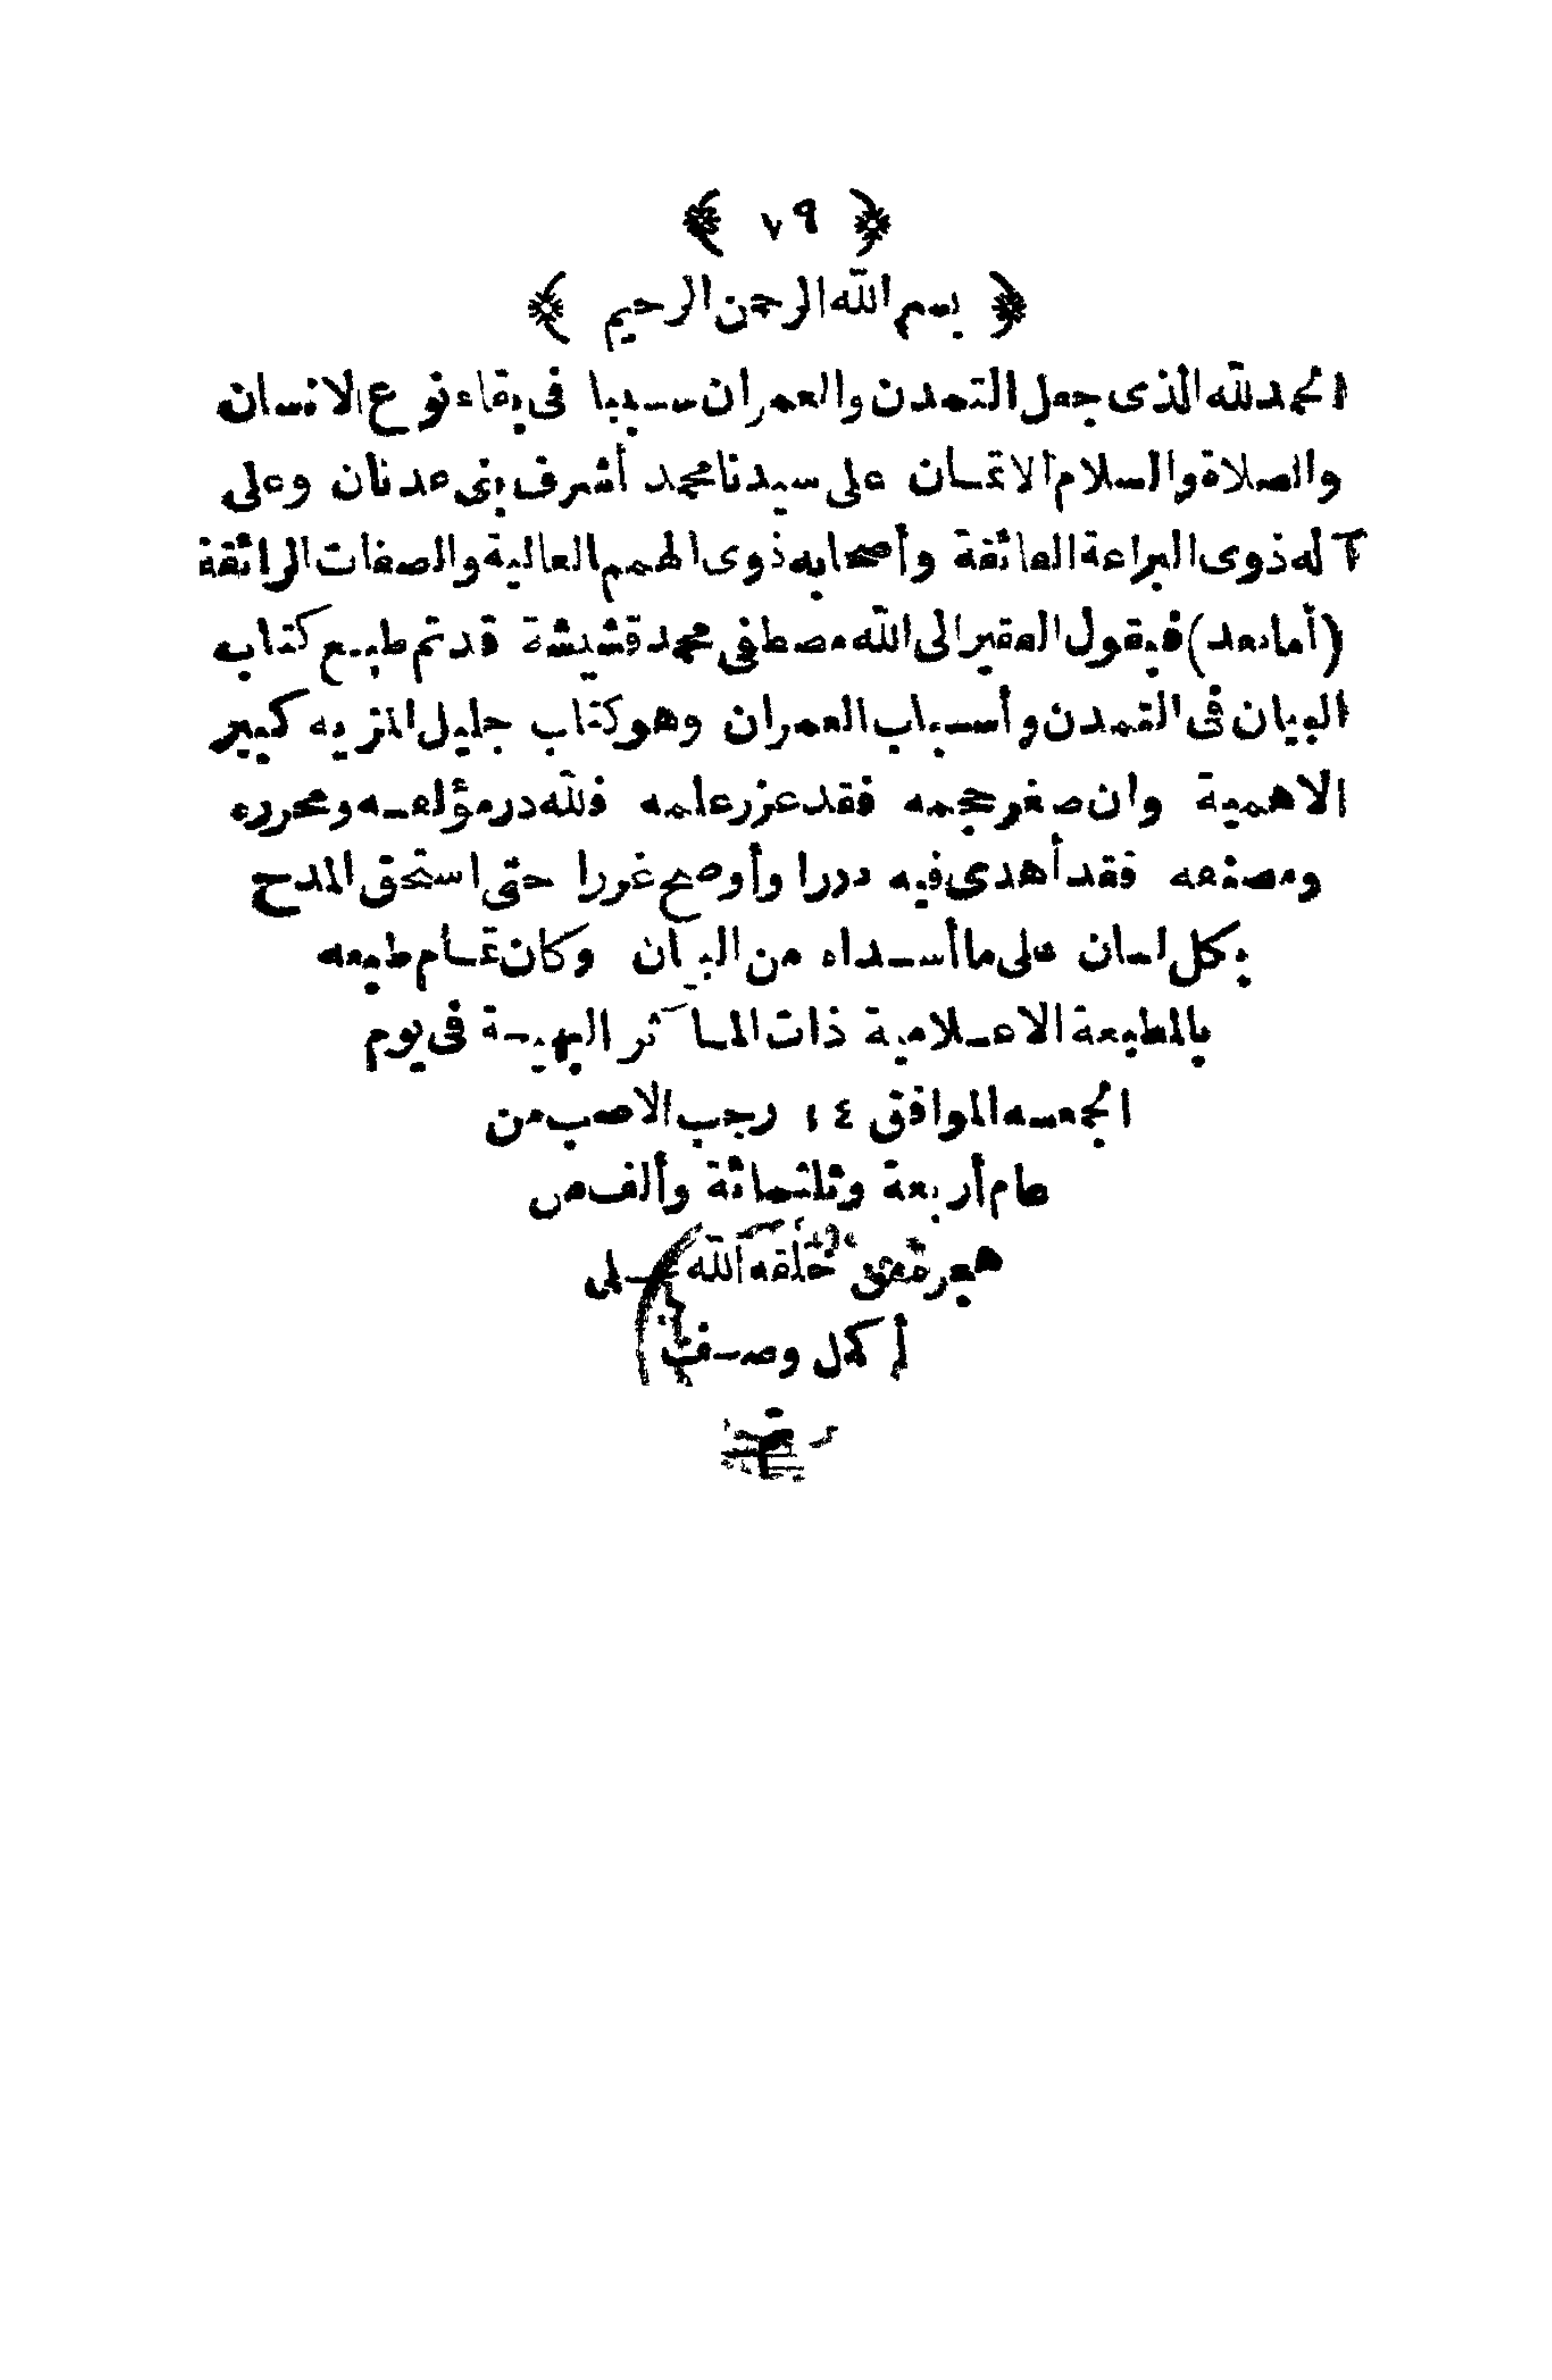 ﴿ ٧٩ ﴾
﴿ بسم الله الرحمن الرحيم ﴾
الحمد لله الذى جعل التمدن والعمران سببا فى بقاء نوع الانسان
والصلاة والسلام الاتمان على سيدنا محمد أشرف بنى عدنان وعلى
آله ذوى البراعة الفائقة وأصحابه ذوى الهمم العالية والصفات الرائقة
(أما بعد) فيقول الفقير الى الله مصطفى محمد قشيشة قد تم طبع كتاب
البيان فى التمدن وأسباب العمران وهو كتاب جليل المزيه كبير
الاهمية وان صغر حجمه فقد عزر علمه فلله در مؤلفه ومحرره
ومصنفه فقد أهدى فيه دررا وأوضح غررا حتى استحق المدح
بكل لسان على ما أسداه من البيان وكان تمام طبعه
بالمطبعة الاعلامية ذات المآثر البهية فى يوم
الجمعه الموافق ١٤ رجب الاصب من
عام أربعة وثلثمائة وألف من
هجرة من خلقه الله على
أكمل وصف